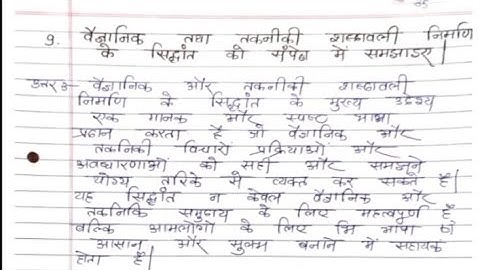 9. वैज्ञानिक तथा तकनीकी शब्दावली निर्माण
के सिद्धांत को संपेक्ष में समझाइए|
उत्तर:- वैज्ञानिक और तकनीकी शब्दावली
निर्माण के सिद्धांत के मुख्य उद्देश्य
एक मानक और स्पष्ट भाषा
प्रदान करता है जो वैज्ञानिक और
तकनिकी विचारों प्रक्रियाओं और
अवधारणाओं को सही और समझने
योग्य तरिके से व्यक्त कर सकते हैं|
यह सिद्धांत न केवल वैज्ञानिक और
तकनिकि समुदाय के लिए महत्वपूर्ण है
बल्कि आमलोगों के लिए भि भाषा को
आसान और सुलभ बनाने में सहायक
होता है|